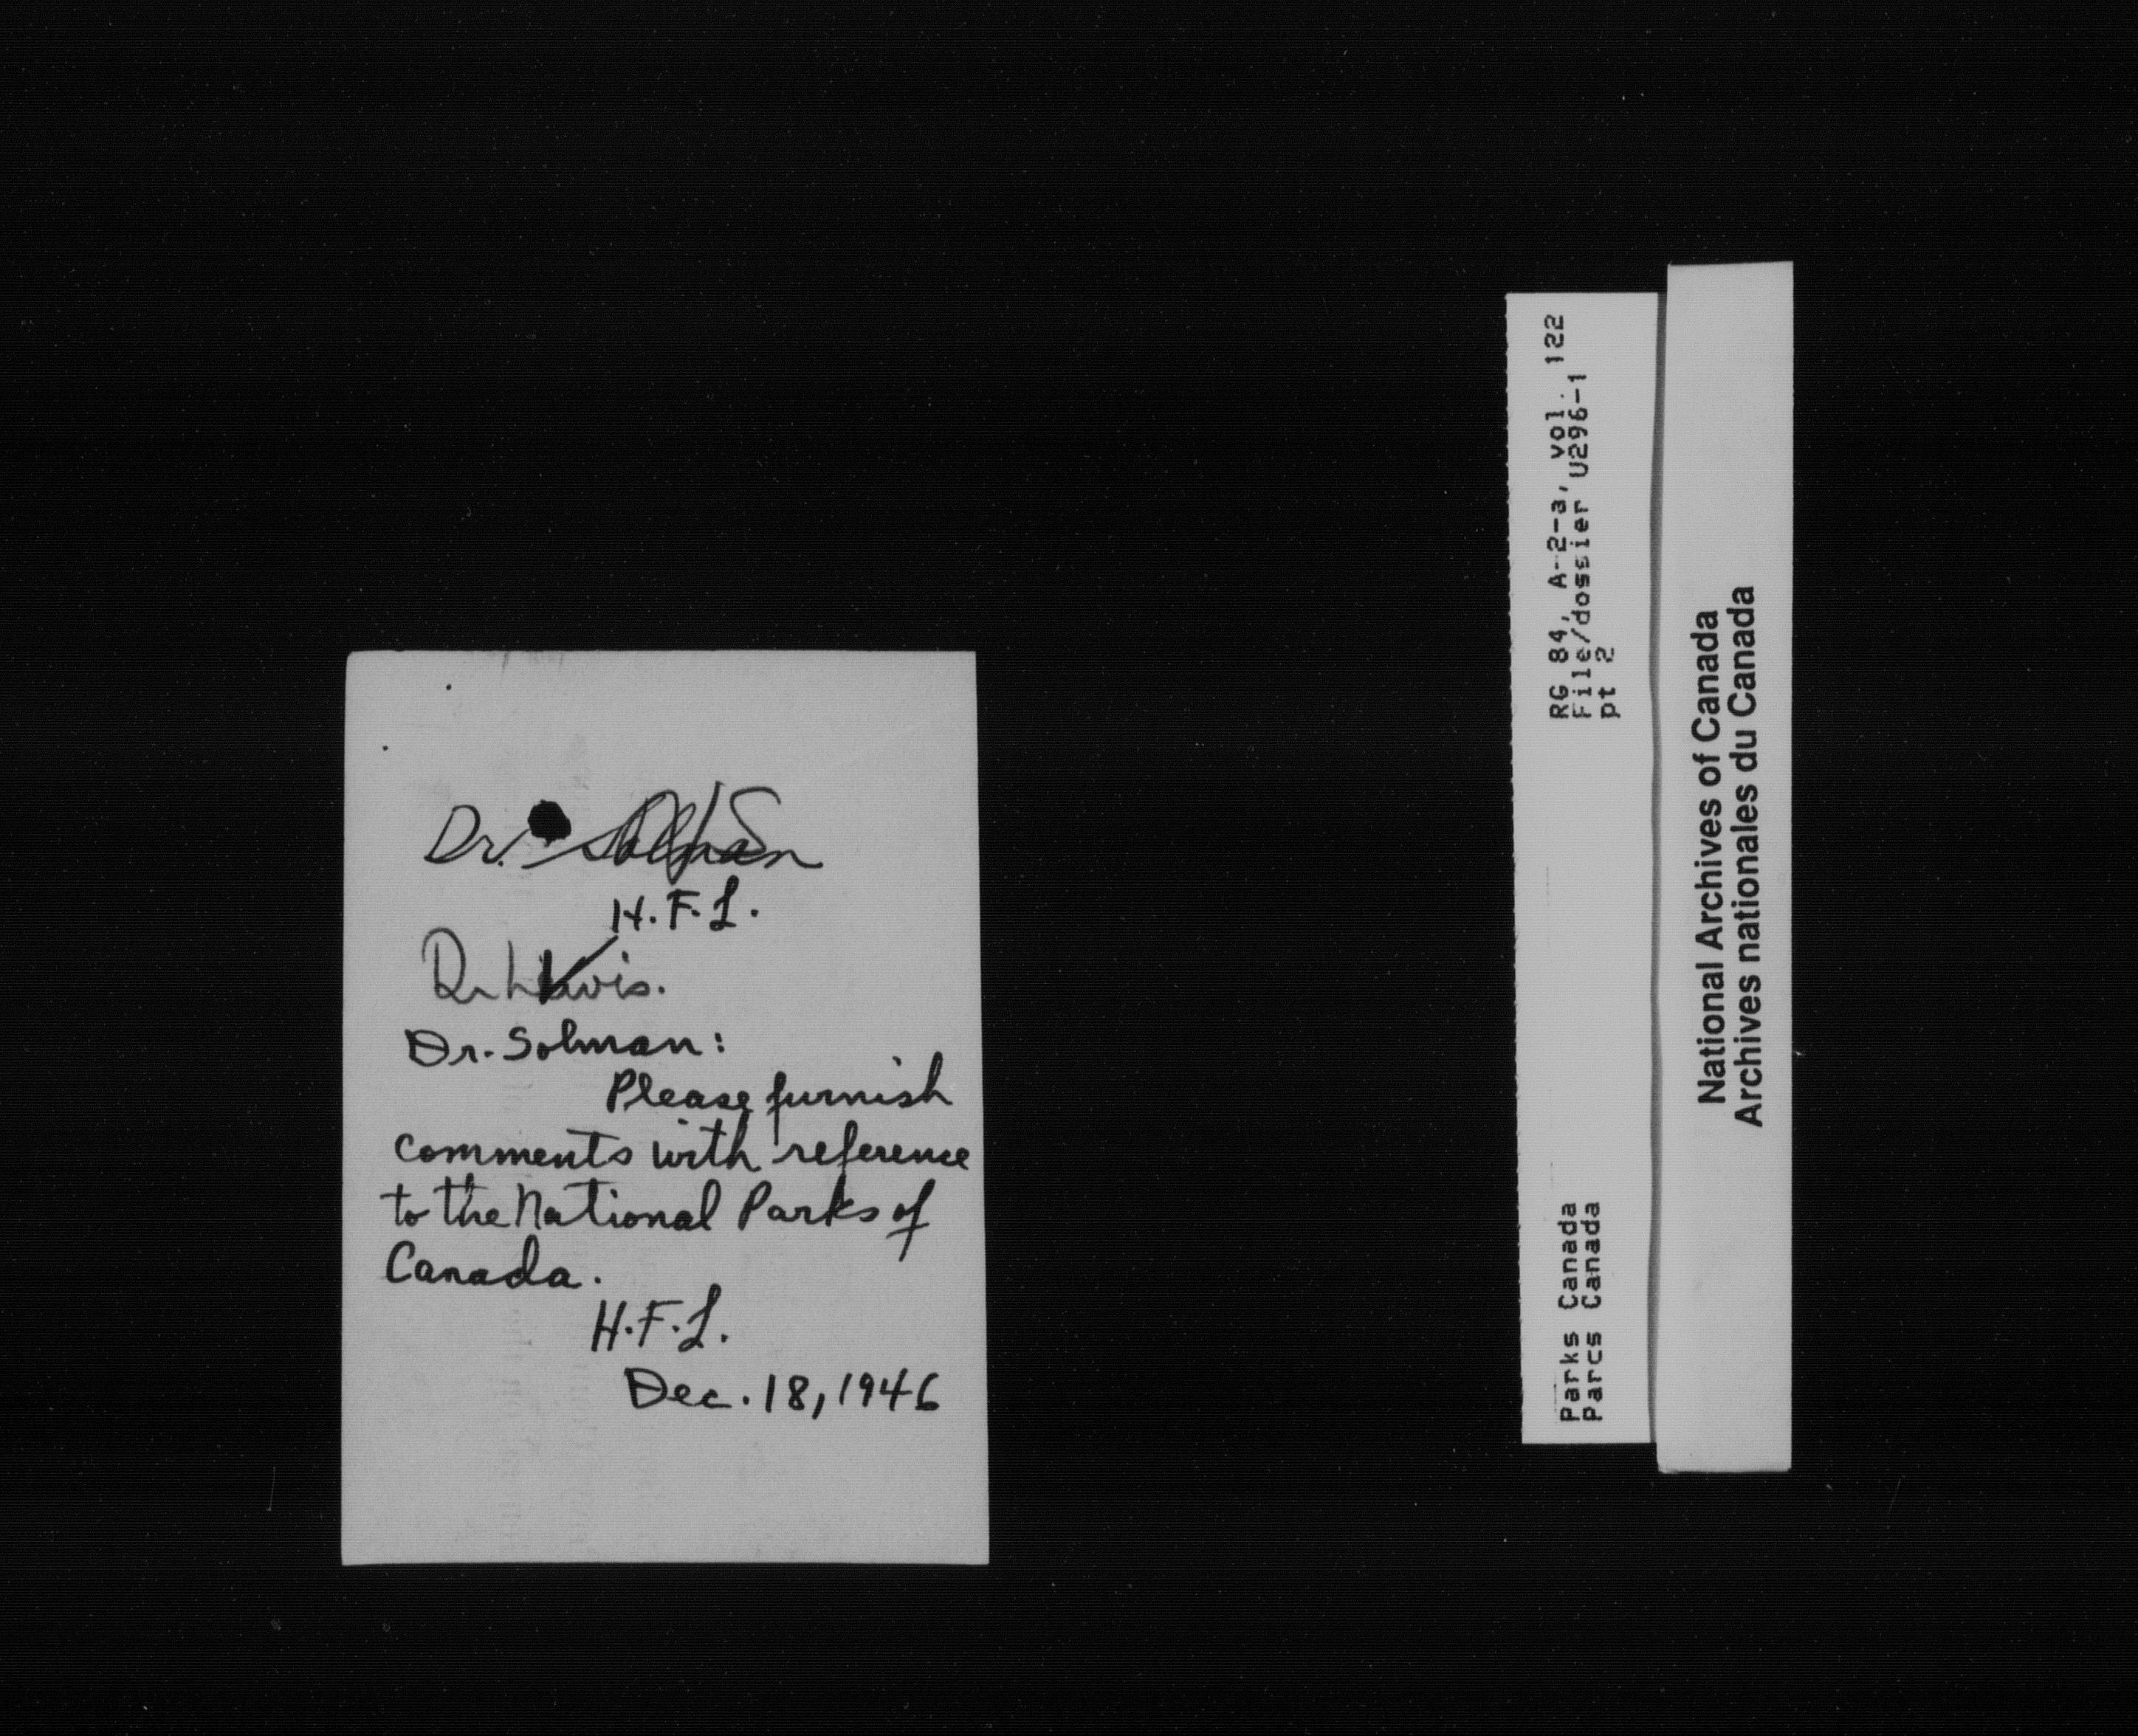 Dr. Solman
H.F.L.
Dr. Lewis.
Dr. Solman:
Please furnish
comments with reference
to the National Parks of
Canada.
H.F.L.
Dec. 18, 1946
RG 84, A-2-a, vol. 122
File/dossier U296-1
pt 2
Parks Canada
Parcs Canada
National Archives of Canada
Archives nationales du Canada